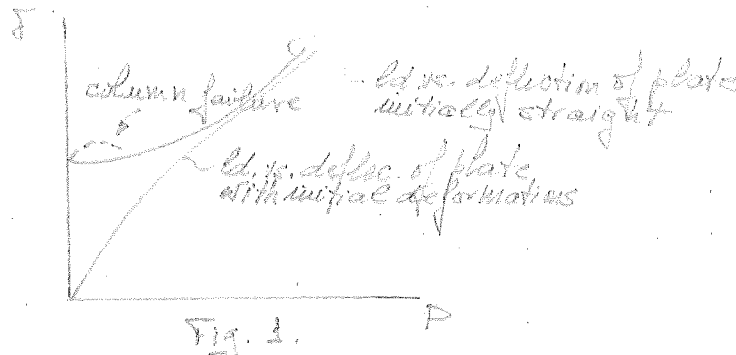 σ
column failure
ld. vs. deflection of plate
initially straight
ld. vs. deflec. of plate
with initial deformations
P
Fig. 1.